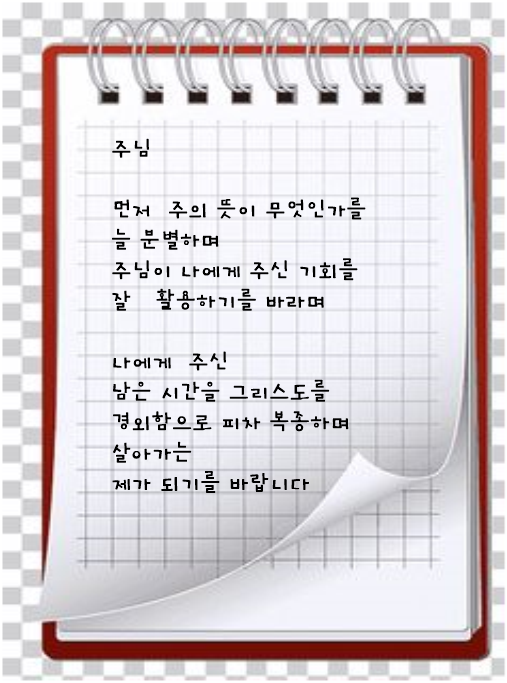 주님
먼저 주의 뜻이 무엇인가를
늘 분별하며
주님이 나에게 주신 기회를
잘 활용하기를 바라며
나에게 주신
남은 시간을 그리스도를
경외함으로 피차 복종하며
살아가는
제가 되기를 바랍니다